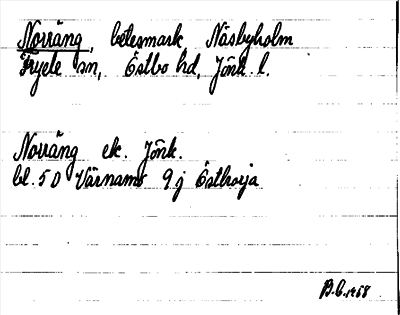 Norräng, betesmark, Näsbyholm
Fryele sn, Östbo hd, Jönk. l.
Norräng ek. Jönk.
bl. 5 D Värnamo 9 j Östhorja
B.C. 1968